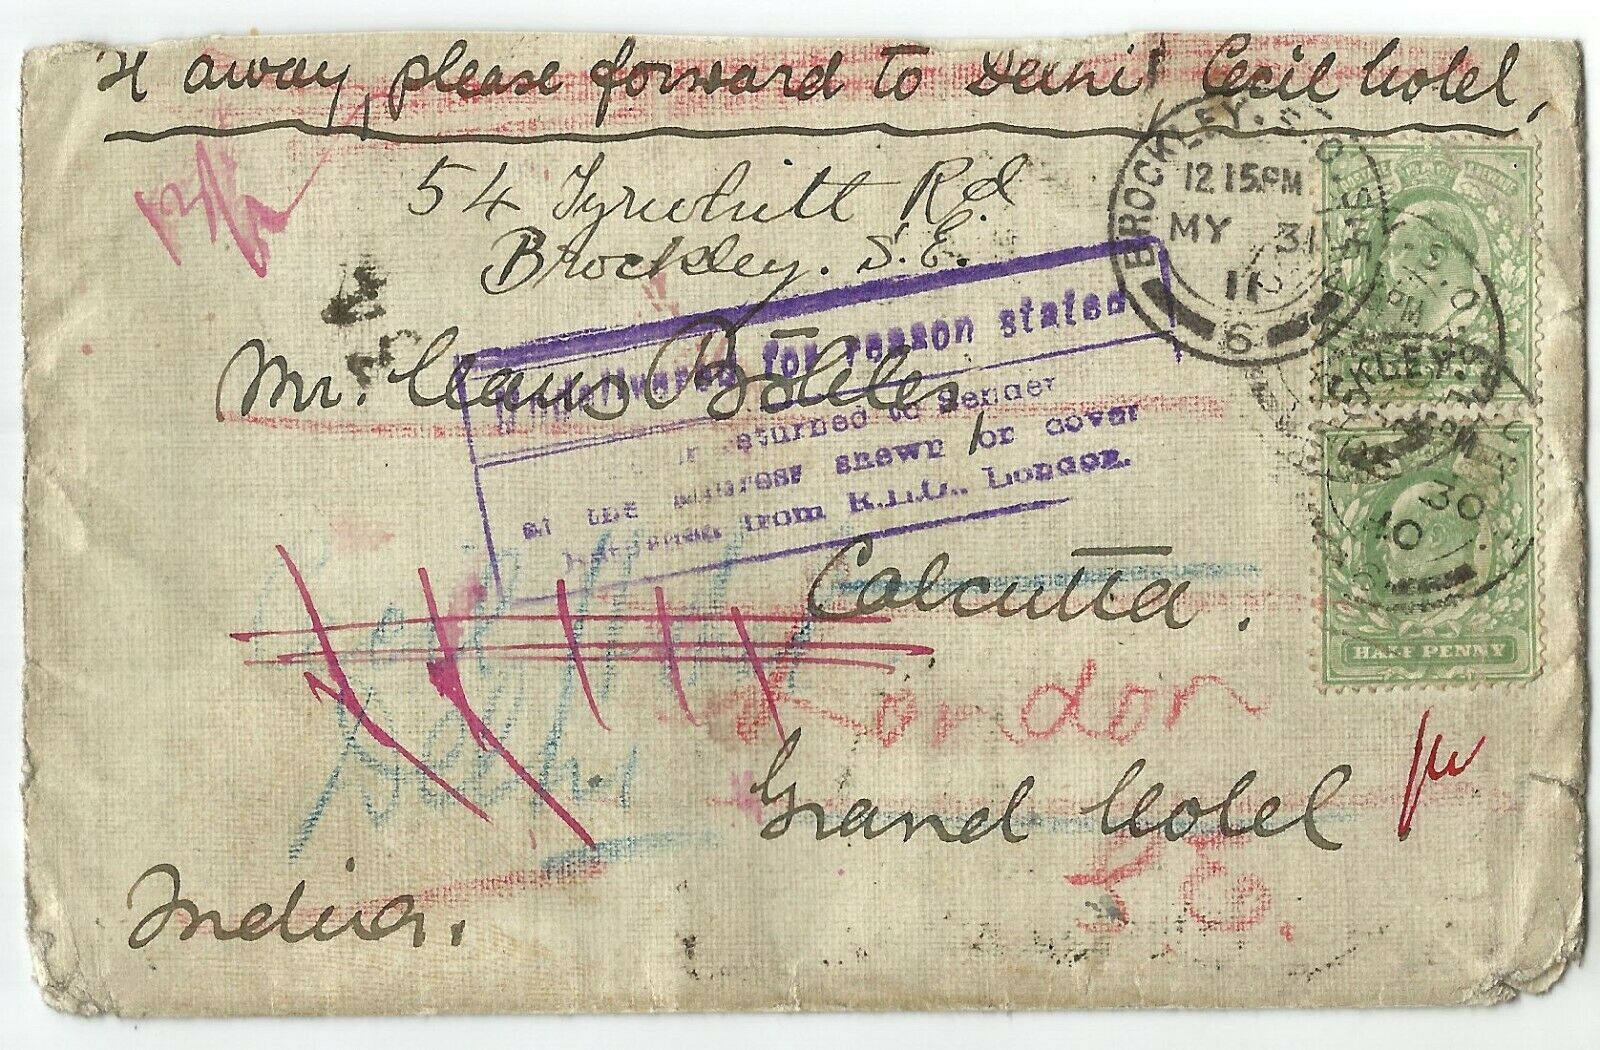 If away, please forward to Delhi Cecil Hotel,
54 Tyrwhitt Rd
Brockley. S.E.
BROCKLEY. S.O.
12.15.PM
MY 31
11
6
Mr. Claus
Undelivered for reason stated
returned to Sender
at the address shewn on cover
from R.L.O., London.
Calcutta.
London
Grand Hotel
S.E.
India.
30
10
HALF PENNY